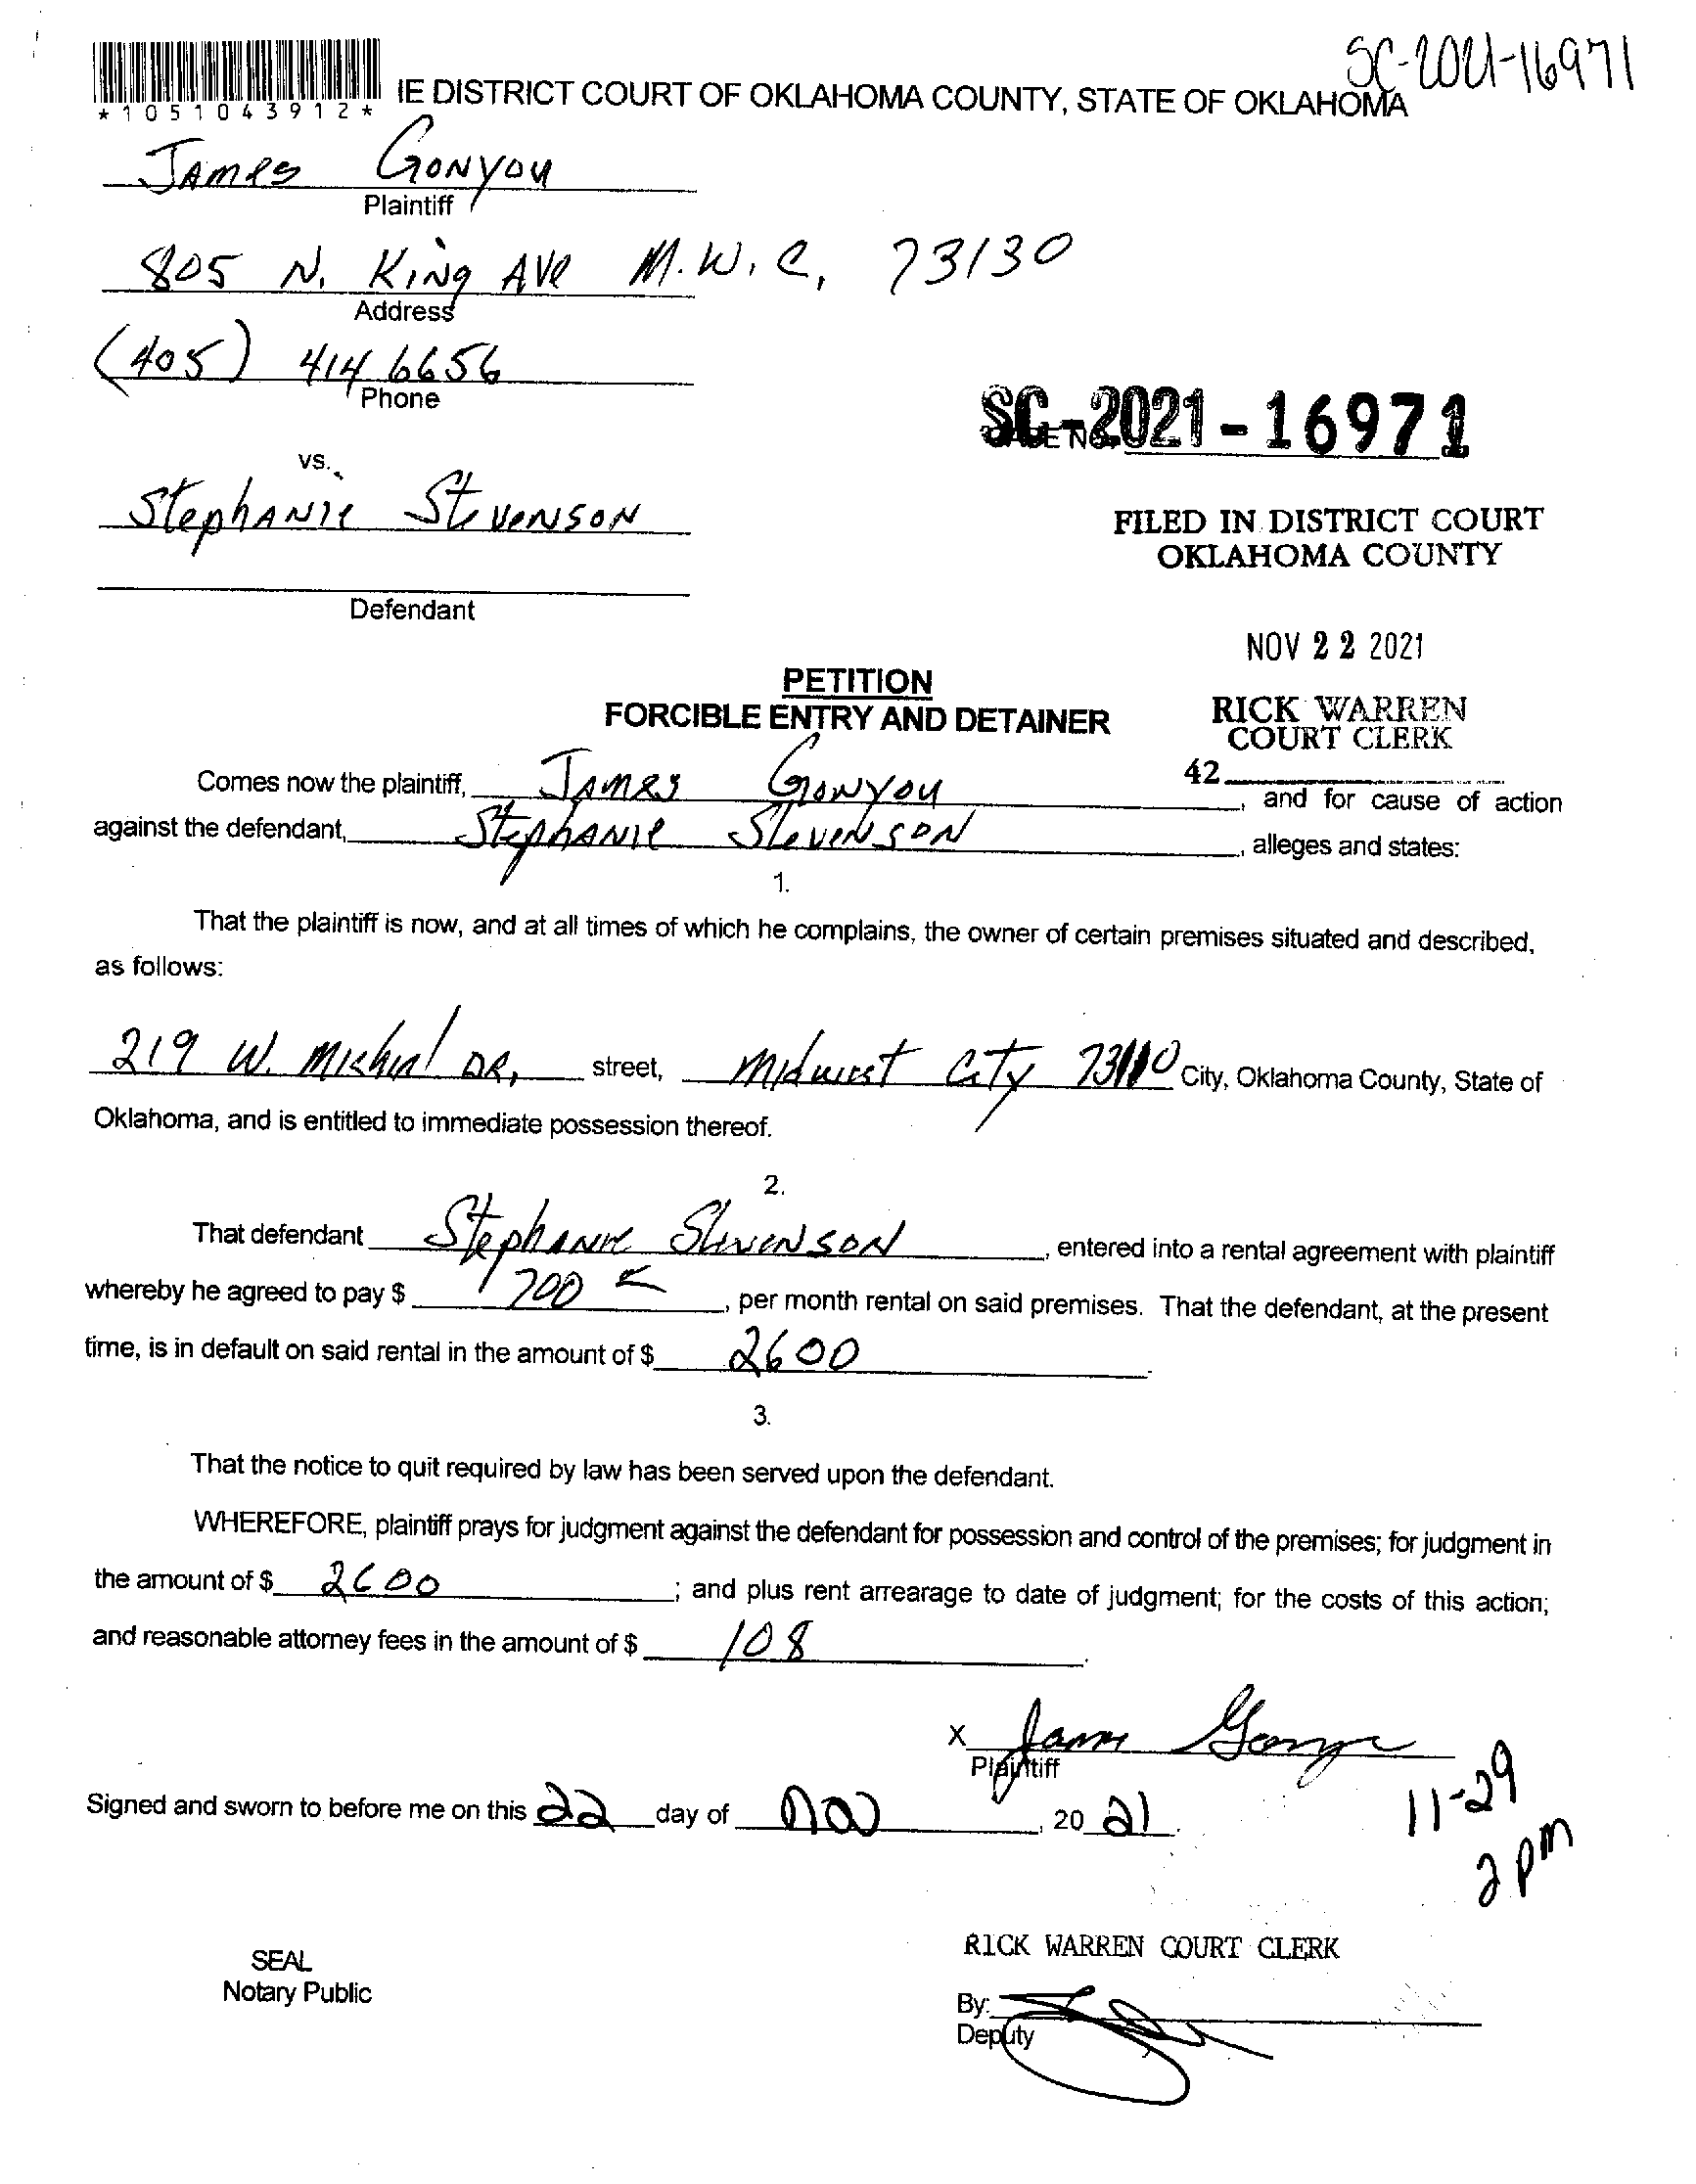 SC-2021-16971
*1051043912*
IE DISTRICT COURT OF OKLAHOMA COUNTY, STATE OF OKLAHOMA
James Gonyou
Plaintiff
805 N. King Ave M.W.C, 73130
Address
(405) 414 6656
Phone
SC-2021-16971
vs.
Stephanie Stevenson
FILED IN DISTRICT COURT
OKLAHOMA COUNTY
Defendant
NOV 22 2021
PETITION
FORCIBLE ENTRY AND DETAINER
RICK WARREN
COURT CLERK
42
Comes now the plaintiff, James Gonyou, and for cause of action
against the defendant, Stephanie Stevenson, alleges and states:
1.
That the plaintiff is now, and at all times of which he complains, the owner of certain premises situated and described,
as follows:
219 W. DR, street, Midwest City 73110 City, Oklahoma County, State of
Oklahoma, and is entitled to immediate possession thereof.
2.
That defendant Stephanie Stevenson, entered into a rental agreement with plaintiff
whereby he agreed to pay $ 700, per month rental on said premises. That the defendant, at the present
time, is in default on said rental in the amount of $ 2600.
3.
That the notice to quit required by law has been served upon the defendant.
WHEREFORE, plaintiff prays for judgment against the defendant for possession and control of the premises; for judgment in
the amount of $ 2600; and plus rent arrearage to date of judgment; for the costs of this action;
and reasonable attorney fees in the amount of $ 108.
X James Gonyou
Plaintiff
Signed and sworn to before me on this 22 day of Nov, 20 21.
11-29
2 pm
RICK WARREN COURT CLERK
SEAL
Notary Public
By:
Deputy